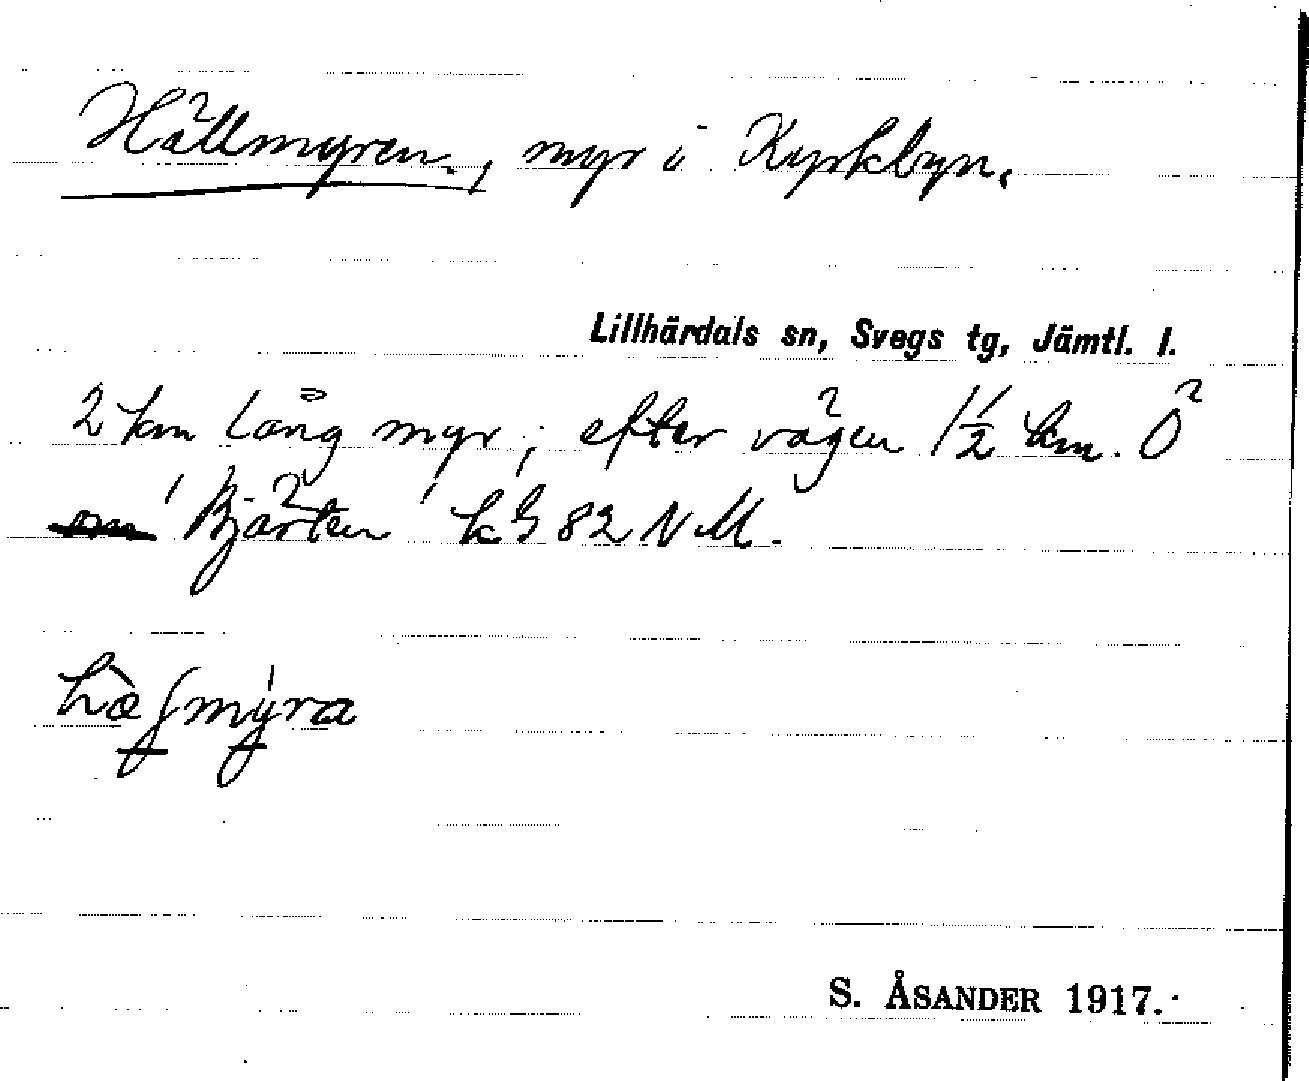 Hällmyren, myr i Kyrkbyn.
Lillhärdals sn, Svegs tg, Jämtl. l.
2 km lång myr, efter vägen 1½ km. Ö
Bjärten k G 82 N M.
S. ÅSANDER 1917.